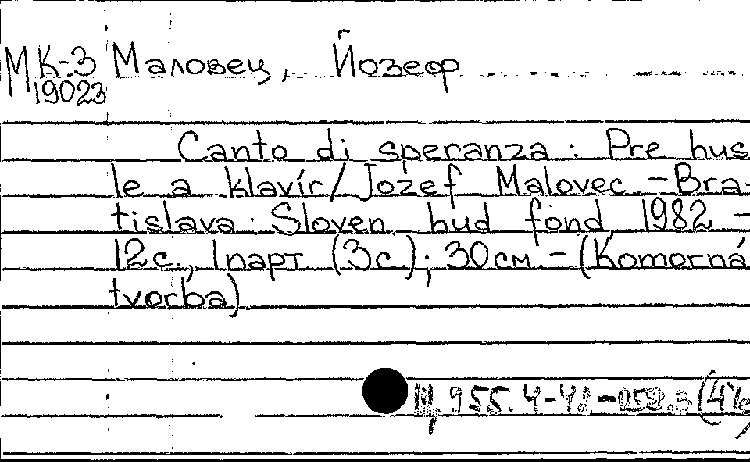 МК-3 Маловец, Йозеф
19023
Canto di speranza : Pre hus
le a klavír/ Jozef Malovec. - Bra-
tislava: Sloven. hud. fond, 1982. -
12с., 1парт. (3с.); 30см. - (Komorná
tvorba)